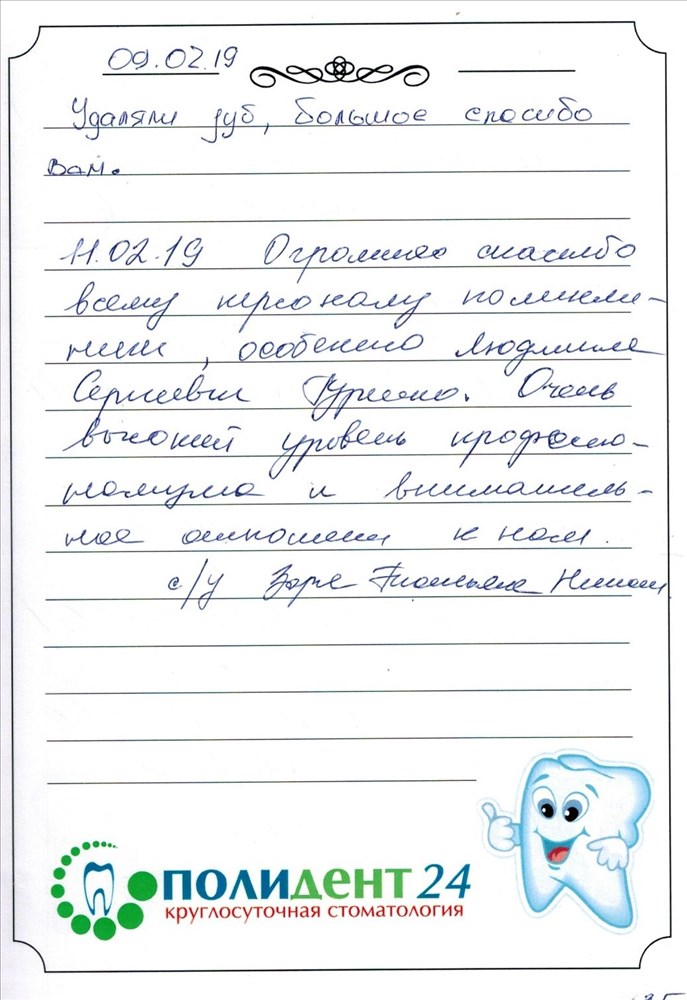 09.02.19
Удаляли зуб, большое спасибо
Вам.
11.02.19 Огромное спасибо
всему персоналу поликли-
ники, особенно Людмиле
Сергеевне
Очень
высокий уровень профессио-
нализма и вниматель-
ное отношение к нам.
с/у Татьяна
ПОЛИДЕНТ 24
КРУГЛОСУТОЧНАЯ СТОМАТОЛОГИЯ